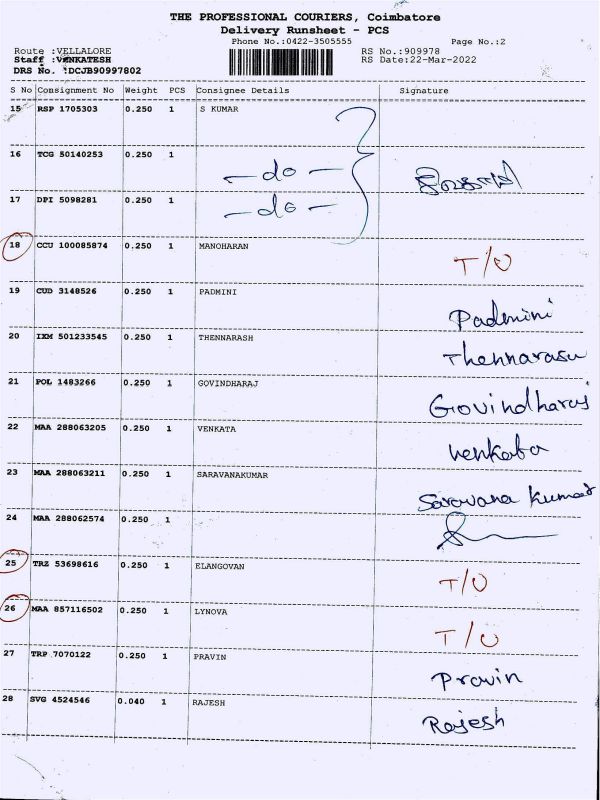 THE PROFESSIONAL COURIERS, Coimbatore
Delivery Runsheet - PCS
Phone No.:0422-3505555 Page No.:2
Route :VELLALORE RS No.:909978
Staff :VENKATESH RS Date:22-Mar-2022
DRS No. :DCJB90997802
S No Consignment No Weight PCS Consignee Details Signature
15 RSP 1705303 0.250 1 S KUMAR
16 TCG 50140253 0.250 1 - do -
17 DPI 5098281 0.250 1 - do -
18 CCU 100085874 0.250 1 MANOHARAN T/O
19 CUD 3148526 0.250 1 PADMINI Padmini
20 IXM 501233545 0.250 1 THENNARASH Thennarasu
21 POL 1483266 0.250 1 GOVINDHARAJ Govindharaj
22 MAA 288063205 0.250 1 VENKATA Venkata
23 MAA 288063211 0.250 1 SARAVANAKUMAR Saravana Kumar
24 MAA 288062574 0.250 1
25 TRZ 53698616 0.250 1 ELANGOVAN T/O
26 MAA 857116502 0.250 1 LYNOVA T/O
27 TRP 7070122 0.250 1 PRAVIN Pravin
28 SVG 4524546 0.040 1 RAJESH Rajesh